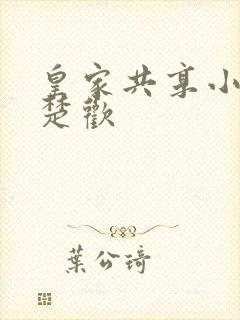 皇家共享小
楚歡
葉公琦